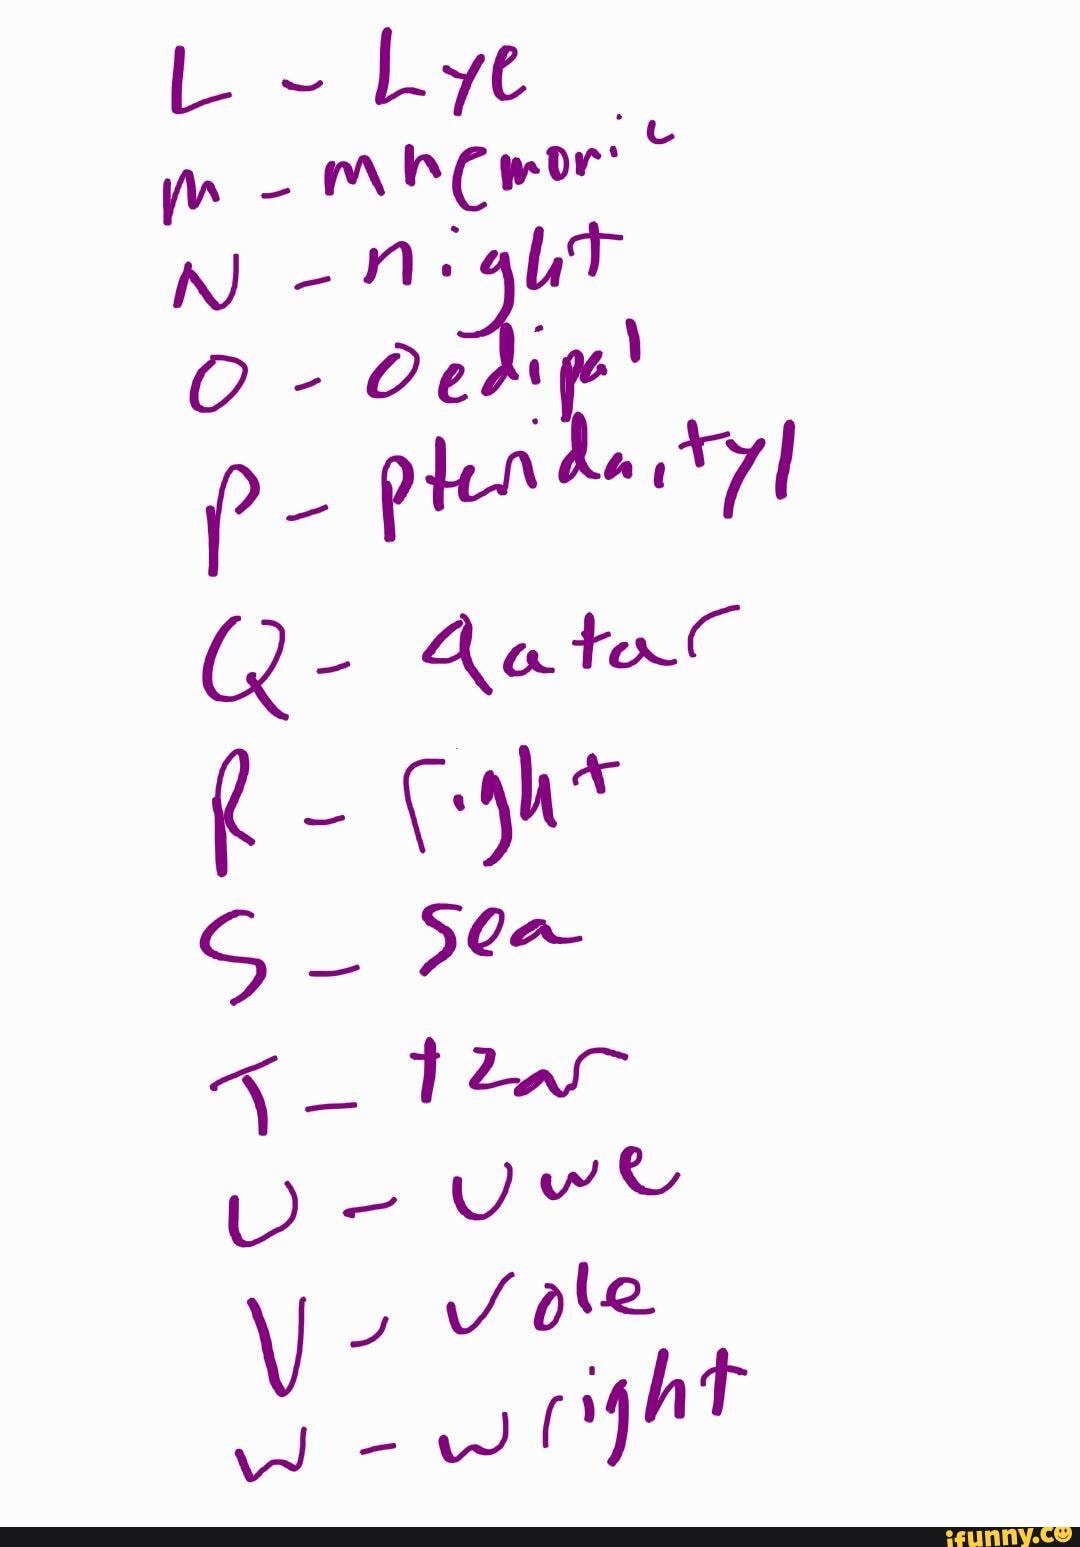 L - Lye
m - mnemonic
N - night
O - Oedipal
P - pteridactyl
Q - Qatar
R - right
S - sea
T - tzar
U - Uwe
V - vole
W - wright
ifunny.co